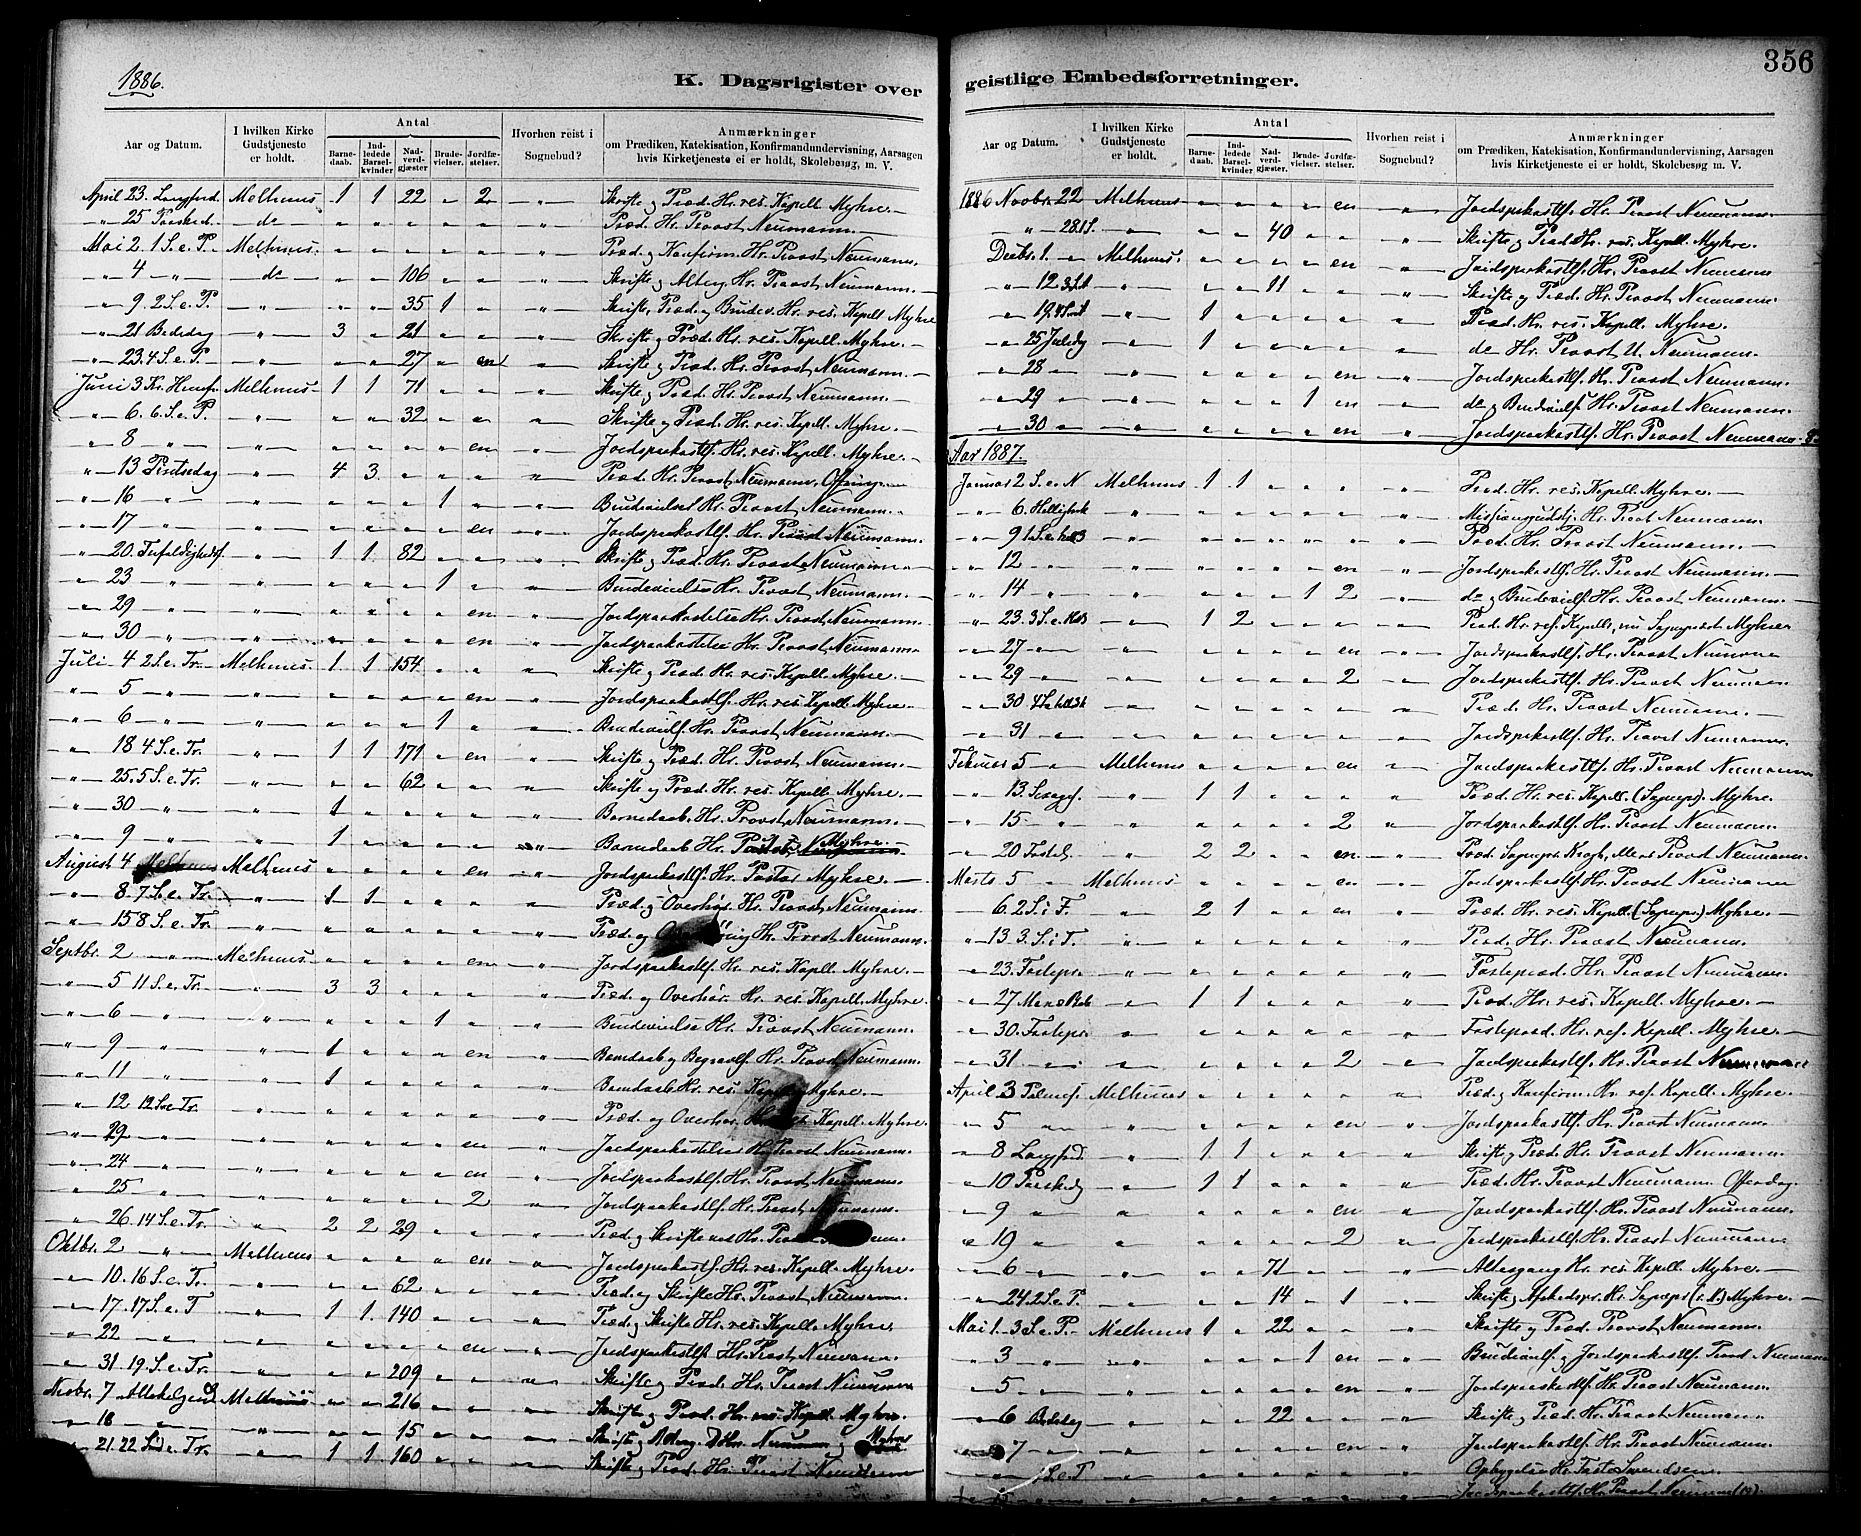 356
1886.
K. Dagsrigister over
geistlige Embedsforretninger.
Aar og Datum.
I hvilken Kirke Gudstjeneste er holdt.
Antal
Barnedaab.
Indledede Barselkvinder
Nadverdgjæster
Brudevielser.
Jordfæstelser.
Hvorhen reist i Sognebud?
Anmærkninger
om Prædiken, Katekisation, Konfirmandundervisning, Aarsagen
hvis Kirketjeneste ei er holdt, Skolebesøg, m. V.
April 23. Langfred. Melhuus 1 1 22 " 2 " Skrifte og Præd. Hr. res. Kapell. Myhre.
" 25 Paasked. do " " " " " " Præd. Hr. Provst Neumann.
Mai 2. 1 S. e. P. Melhuus " " " " " " Præd. og Konfirm. Hr. Provst Neumann.
" 4 " do " " 106 " " " Skrifte og Alterg. Hr. Provst Neumann.
" 9. 2 S. e. P. " " " 35 1 " " Skrifte, Præd. og Brudev. Hr. res. Kapell. Myhre
" 21 Bededag " 3 " 21 " " " Skrifte og Præd. Hr. res. Kapell. Myhre.
" 23. 4 S. e. P. " " " 27 " en " Skrifte og Præd. Hr. Provst Neumann.
Juni 3 Kr. Himmelf. Melhuus 1 1 71 " " " Skrifte og Præd. Hr. Provst Neumann.
" 6. 6. S. e. P. " " " 32 " " " Skrifte og Præd. Hr. res. Kapell. Myhre.
" 8 " " " " " " en " Jordspaakastls. Hr. res. Kapell. Myhre.
" 13 Pintsedag " 4 3 " " " " Præd. Hr. Provst Neumann. Ofring.
" 16 " " " " " 1 " " Brudevielse Hr. Provst Neumann.
" 17 " " " " " " en " Jordspaakastls. Hr. Provst Neumann.
" 20. Trefoldighedsf. " 1 1 82 " " " Skrifte og Præd. Hr. Provst Neumann
" 23 " " " " " 1 " " Brudevielse Hr. Provst Neumann.
" 29 " " " " " " en " Jordspaakastelse Hr. Provst Neumann.
" 30 " " " " " " en " Jordspaakastelse Hr. Provst Neumann
Juli 4 2 S. e. Tr. Melhuus 1 1 154 " " " Skrifte og Præd. Hr. res. Kapell. Myhre.
" 5 " " " " " " en " Jordspaakastls. Hr. res. Kapell. Myhre.
" 6 " " " " " 1 " " Brudevielse Hr. Provst Neumann.
" 18 4 S. e. Tr. " 1 1 171 " en " Skrifte og Præd. Hr. Provst Neumann.
" 25. 5 S. e. Tr. " " " 62 " " " Skrifte og Præd. Hr. res. Kapell. Myhre.
" 30 " " 1 " " " " " Barnedaab. Hr. Provst Neumann.
" 9 " " 1 " " " " " Barnedaab Hr. Pastor Myhre.
August 4 Melhuus " " " " en " Jordspaakastls. Hr. Pastor Myhre.
" 8. 7 S. e. Tr. " 1 1 " " " " Præd. og Overhør. Hr. Provst Neumann.
" 15 8 S. e. Tr. " " " " " " " Præd. og Overhøring Hr. Provst Neumann.
Septbr. 2 " Melhuus " " " " en " Jordspaakastls. Hr. res. Kapell. Myhre
" 5 11 S. e. Tr. " 3 3 " " " " Præd. og Overhør. Hr. res. Kapell. Myhre.
" 6 " " " " " 1 " " Brudevielse Hr. Provst Neumann.
" 9 " " 1 " " " en " Barnedaab og Begravels. Hr. Provst Neumann.
" 11 " " 1 " " " " " Barnedaab Hr. res. Kapell. Myhre.
" 12 12 S. e. Tr. " " " " " " " Præd. og Overhør. Hr. res. Kapell. Myhre.
" 29 " " " " " " en " Jordspaakastelse Hr. Provst Neumann.
" 24 " " " " " " en " Jordspaakastls. Hr. Provst Neumann.
" 25 " " " " " " 2 " Jordspaakastls. Hr. Provst Neumann.
" 26. 14 S. e. Tr. " 2 2 29 " " " Præd. og Skrifte ved Hr. Provst
Oktbr. 2 " Melhuus " " " " en " Jordspaakastls. Hr. res. Kapell. Myhre.
" 10. 16 S. e. Tr. " " " 62 " " " Præd. og Skrifte Hr. Provst Neumann.
" 17. 17 S. e. T " 1 1. 140 " " " Præd. og Skrifte Hr. res. Kapell. Myhre.
" 22 " " " " " " en " Jordspaakastls. Hr. Provst Neumann.
" 31. 19. S. e. Tr. " " " 209 " " " Skrifte og Præd. Hr. Provst Neumann
Novbr. 7 Allehelgend. Melhuus " " 216 " " " Skrifte og Præd. Hr. res. Kapell. Myhre.
" 18 " " " " 15 " " " Skrifte og Alterg. Neumann og Myhre
" 21. 22 S. e. Tr. " 1 1 160 " " " Skrifte og Præd. Hr. Provst Neumann
Aar og Datum.
I hvilken Kirke Gudstjeneste er holdt.
Antal
Barnedaab.
Indledede Barselkvinder
Nadverdgjæster.
Brudevielser.
Jordfæstelser.
Hvorhen reist i Sognebud?
Anmærkninger
om Prædiken, Katekisation, Konfirmandundervisning, Aarsagen
hvis Kirketjeneste ei er holdt, Skolebesøg m. V.
1886 Novbr. 22 Melhuus " " " " en " Jordspaakastls. Hr. Provst Neumann.
" 28. 1 S. " " " 40 " " " Skrifte og Præd. Hr. res. Kapell. Myhre.
Decbr. 1. " Melhuus. " " " " en " Jordspaakastls. Hr. Provst Neumann
" 12 " " " 11 " " " Skrifte og Præd. Hr. Provst Neumann.
" 19. " 1 " " " " " Præd. Hr. res. Kapell. Myhre.
" 25 Juledag " 1 " " " " " do Hr. Provst Neumann.
" 28 " " " " " " en " Jordspaakastls. Hr. Provst Neumann.
" 29 " " " " " 1 en " do og Brudevielse Hr. Provst Neumann.
" 30 " " " " " " en " Jordspaakastls. Hr. Provst Neumann
Aar 1887.
Januar 2 S. e. N Melhuus 1 1 " " " " Præd. Hr. res. Kapell. Myhre.
" 6. " " " " " " " Missionsgudstj. Hr. Provst Neumann.
" 9 1 S. e. " " " " " " " Præd. Hr. Provst Neumann.
" 12 " " " " " " en " Jordspaakastls. Hr. Provst Neumann.
" 14 " " " " " 1 2 " do og Brudevielse Hr. Provst Neumann.
" 23. 3 S. e. " 1 2 " " " " Præd. Hr. res. Kapell., nu Sogneprest Myhre
" 27 " " " " " " en " Jordspaakastls. Hr. Provst Neumann
" 29 " " " " " " 2 " Jordspaakastls. Hr. Provst Neumann
" 30 " " " " " " " Præd. Hr. Provst Neumann.
" 31 " " " " " " " " Jordspaakastls. Hr. Provst Neumann.
Februar 5 " Melhuus " " " " en " Jordspaakastls. Hr. Provst Neumann
" 13. Sexages. " 1 1 " " " " Præd. Hr. res. Kapell. (Sognepr.) Myhre.
" 15 " " " " " " 2 " Jordspaakastls. Hr. Provst Neumann.
" 20 Fastel. " 2 2 " " en " Præd. Sognepr. Krogh, Provst Neumann.
Marts 5 " Melhuus " " " " en " Jordspaakastls. Hr. Provst Neumann
" 6. 2 S. i F. " 2 1 " " en " Præd. Hr. res. Kapell. (Sognepr.) Myhre.
" 13 3. S. i F. " " " " " " " Præd. Hr. Provst Neumann.
" 23. Fastepr. " " " " " " " Fastepræd. Hr. Provst Neumann.
" 27 Mariæ Beb. " 1 1 " " " " Præd. Hr. res. Kapell. Myhre.
" 30. Fastepr. " " " " " " " Fastepræd. Hr. res. Kapell. Myhre.
" 31 " " " " " " 2 " Jordspaakastls. Hr. Provst Neumann
April 3 Palmes. Melhuus " " " " " " Præd. og Konfirm. Hr. res. Kapell. Myhre.
" 5 " " " " " " en " Jordspaakastls. Hr. Provst Neumann.
" 8 Langfred. " 1 1 " " " " Skrifte og Præd. Hr. Provst Neumann.
" 10 Paaskedag " 1 1 " " " " Præd. Hr. Provst Neumann. Offerdag
" 9 " " " " " " en " Jordspaakastls. Hr. Provst Neumann.
" 19 " " " " " " 2 " Jordspaakastls. Hr. Provst Neumann
" 6 " " " " 71 " " " Altergang Hr. res. Kapell. Myhre.
" 24. 2 S. e. P. " " " 14 " 1 " Skrifte og Afskedspr. Hr. Sognepr. Myhre.
Mai 1. 3 S. e. P. Melhuus 1 " 22 " " " Skrifte og Præd. Provst Neumann.
" 3 " " " " " 1 en " Brudevielse og Jordspaakastls. Provst Neumann
" 5 " " " " " " en " Jordspaakastls. Hr. Provst Neumann.
" 6 Bededag " " " 22 " " " Skrifte og Præd. Hr. Provst Neumann
" 7 " " " " " " en " Jordspaakastls. Hr. Provst Neumann.
S. e. P " " " " " " " Opbyggelse Hr. Svendsen.
Jordspaakastls. Hr. Provst Neumann